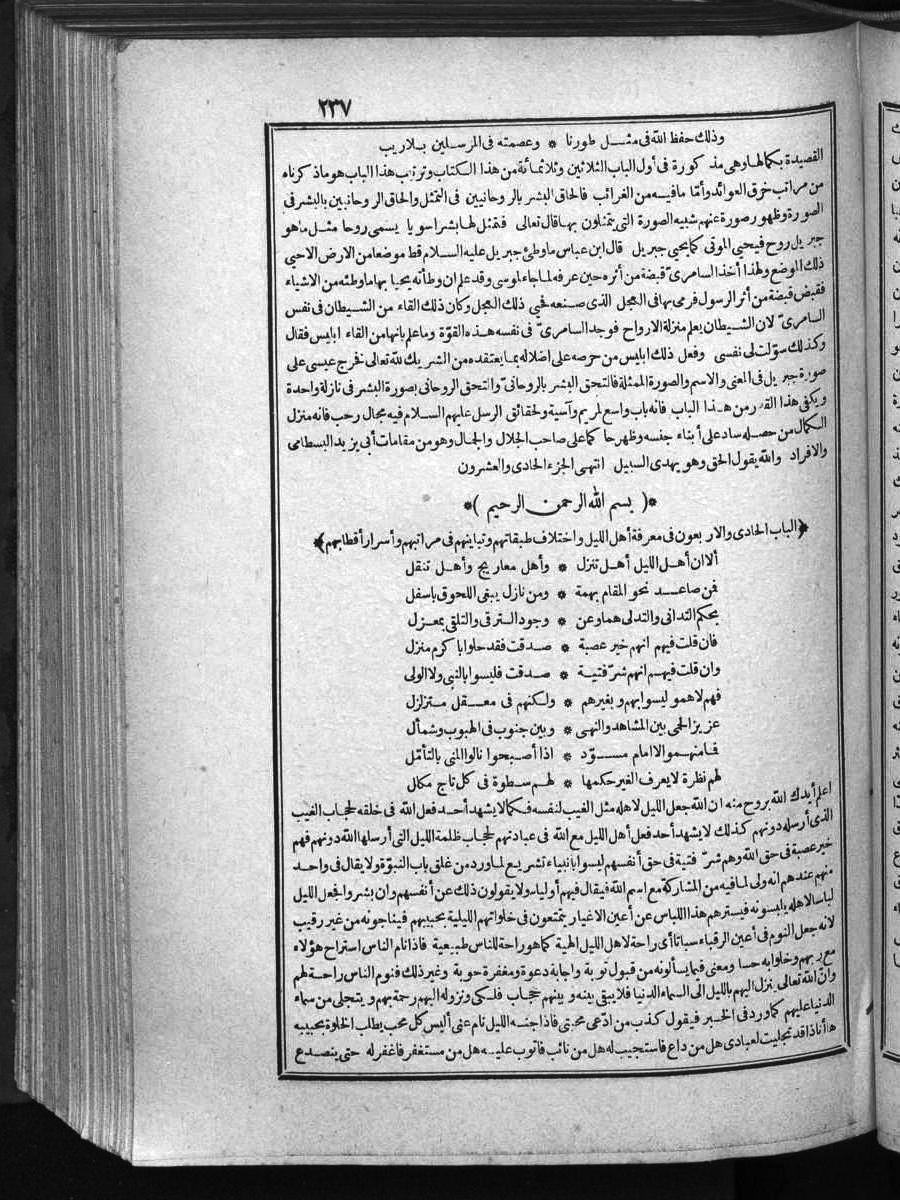 ٢٣٧
وذلك حفظ الله فى مثل طورنا * وعصمته فى المرسلين بلاريب
القصيدة بكمالها وهى مذكورة فى أول الباب الثلاثين وثلاثمائة من هذا الكتاب وترتيب هذا الباب هو ماذكرناه
من مراتب خرق العوائد وأما مافيه من الغرائب فالحاق البشر بالروحانيين فى التمثل والحاق الروحانيين بالبشر فى
الصورة وظهور صورة عنهم شبيه الصورة التى يتمثلون بها قال تعالى فتمثل لها بشرا سويا يسمى روحا مثل ماهو
جبريل روح فيحيى الموتى كما يحيى جبريل قال ابن عباس ماوطئ جبريل عليه السلام قط موضعا من الارض الاحيى
ذلك الموضع ولهذا أخذ السامرى قبضة من أثره حين عرفه لما جاء لموسى وقد علم ان وطأته يحيا بها ماوطئه من الاشياء
فقبض قبضة من أثر الرسول فرمى بها فى العجل الذى صنعه فحيى ذلك العجل وكان ذلك القاء من الشيطان فى نفس
السامرى لان الشيطان يعلم منزلة الارواح فوجد السامرى فى نفسه هذه القوة وماعلم بانها من القاء ابليس فقال
وكذلك سولت لى نفسى وفعل ذلك ابليس من حرصه على اضلاله بما يعتقده من الشريك لله تعالى فخرج عيسى على
صورة جبريل فى المعنى والاسم والصورة الممثلة فالتحق البشر بالروحانى والتحق الروحانى بصورة البشر فى نازلة واحدة
ويكفى هذا القدر من هذا الباب فانه باب واسع لمريم وآسية ولحقائق الرسل عليهم السلام فيه مجال رحب فانه منزل
الكمال من حصله ساد على أبناء جنسه وظهر حاكما على صاحب الجلال والجمال وهو من مقامات أبى يزيد البسطامى
والافراد والله يقول الحق وهو يهدى السبيل انتهى الجزء الحادى والعشرون
*( بسم الله الرحمن الرحيم )*
﴿الباب الحادى والاربعون فى معرفة أهل الليل واختلاف طبقاتهم وتباينهم فى مراتبهم وأسرار أقطابهم﴾
ألاان أهل الليل أهل تنزل * وأهل معاريج وأهل تنقل
فمن صاعد نحو المقام بهمة * ومن نازل يبغى اللحوق باسفل
بحكم التدانى والتدلى هما وعن * وجود الترقى والتلقى بمعزل
فان قلت فيهم انهم خير عصبة * صدقت فقد حلوا باكرم منزل
وان قلت فيهم انهم شر فتية * صدقت فليسوا بالنبى ولا الولى
فهم لاهمو ليسوا بهم وبغيرهم * ولكنهم فى معقل متزلزل
عزيز الحمى بين المشاهد والنهى * وبين جنوب فى الهبوب وشمأل
فمامنهمو الا امام مسوّد * اذا أصبحوا نالوا المنى بالتأمّل
لهم نظرة لايعرف الغير حكمها * لهم سطوة فى كل تاج مكلل
اعلم أيدك الله بروح منه ان الله جعل الليل لاهله مثل الغيب لنفسه فكما لايشهد أحد فعل الله فى خلقه لحجاب الغيب
الذى أرسله دونهم كذلك لايشهد أحد فعل أهل الليل مع الله فى عبادتهم لحجاب ظلمة الليل التى أرسلها الله دونهم فهم
خير عصبة فى حق الله وهم شر فتية فى حق أنفسهم ليسوا بانبياء تشريع لماورد من غلق باب النبوّة ولايقال فى واحد
منهم عندهم انه ولى لمافيه من المشاركة مع اسم الله فيقال فيهم أولياء ولايقولون ذلك عن أنفسهم وان بشروا فجعل الليل
لباسا لاهله يلبسونه فيسترهم هذا اللباس عن أعين الاغيار يتمتعون فى خلواتهم الليلية بحبيبهم فيناجونه من غير رقيب
لانه جعل النوم فى أعين الرقباء سباتا أى راحة لاهل الليل الهية كماهو راحة للناس طبيعية فاذا نام الناس استراح هؤلاء
مع ربهم وخلوا به حسا ومعنى فيما يسألونه من قبول توبة واجابة دعوة ومغفرة حوبة وغير ذلك فنوم الناس راحة لهم
وان الله تعالى ينزل اليهم بالليل الى السماء الدنيا فلايبقى بينه وبينهم حجاب فلكى ونزوله اليهم رحمة بهم ويتجلى من سماء
الدنيا عليهم كماورد فى الخبر فيقول كذب من ادّعى محبتى فاذا جنه الليل نام عنى أليس كل محب يطلب الخلوة بحبيبه
ها أناذا قد تجليت لعبادى هل من داع فاستجيب له هل من تائب فاتوب عليه هل من مستغفر فاغفر له حتى ينصدع